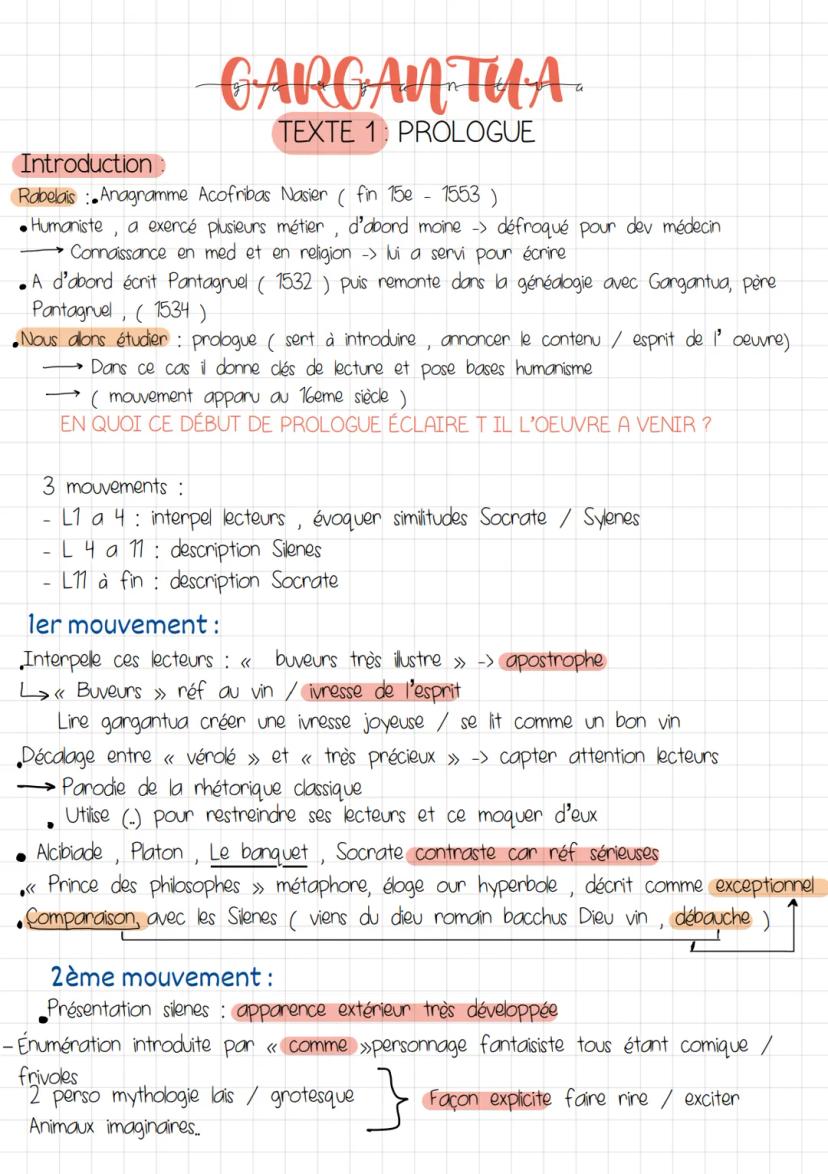 GARGANTUA
gargantua
TEXTE 1 : PROLOGUE
Introduction :
Rabelais : • Anagramme Acofribas Nasier ( fin 15e - 1553 )
• Humaniste , a exercé plusieurs métier , d'abord moine -> défroqué pour dev médecin
→ Connaissance en med et en religion -> lui a servi pour écrire
• A d'abord écrit Pantagruel ( 1532 ) puis remonte dans la généalogie avec Gargantua, père
Pantagruel , ( 1534 )
• Nous allons étudier : prologue ( sert à introduire , annoncer le contenu / esprit de l' oeuvre)
→ Dans ce cas il donne clés de lecture et pose bases humanisme
→ ( mouvement apparu au 16eme siècle )
EN QUOI CE DÉBUT DE PROLOGUE ÉCLAIRE T IL L'OEUVRE A VENIR ?
3 mouvements :
- L1 a 4 : interpel lecteurs , évoquer similitudes Socrate / Sylenes
- L 4 a 11 : description Silenes
- L11 à fin : description Socrate
1er mouvement :
• Interpelle ces lecteurs : « buveurs très illustre » -> apostrophe
↳ « Buveurs » réf au vin / ivresse de l'esprit
Lire gargantua créer une ivresse joyeuse / se lit comme un bon vin
• Décalage entre « vérolé » et « très précieux » -> capter attention lecteurs
→ Parodie de la rhétorique classique
• Utilise (..) pour restreindre ses lecteurs et ce moquer d'eux
• Alcibiade , Platon , Le banquet , Socrate contraste car réf sérieuses
• « Prince des philosophes » métaphore, éloge our hyperbole , décrit comme exceptionnel
• Comparaison avec les Silenes ( viens du dieu romain bacchus Dieu vin , débauche )
2ème mouvement :
• Présentation silenes : apparence extérieur très développée
- Énumération introduite par « comme »personnage fantaisiste tous étant comique /
frivoles
2 perso mythologie lais / grotesque
Animaux imaginaires..
} Façon explicite faire rire / exciter